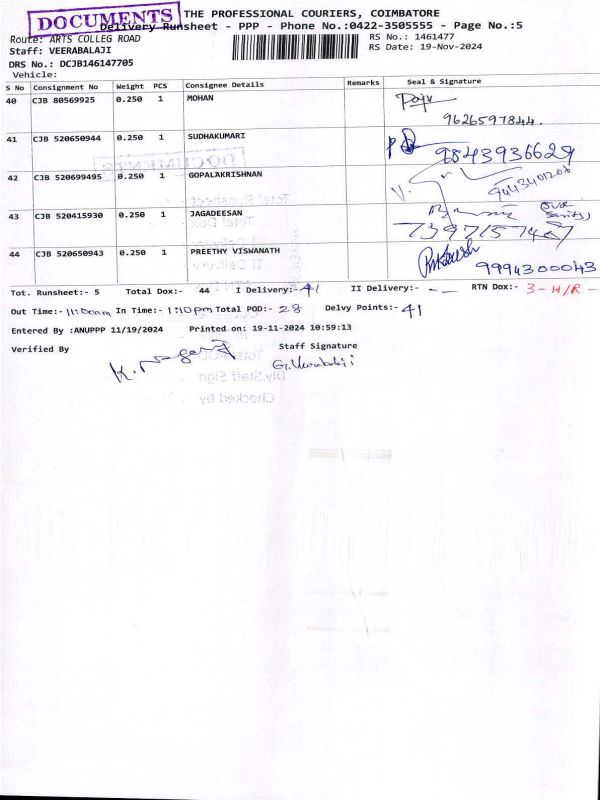 DOCUMENTS
THE PROFESSIONAL COURIERS, COIMBATORE
Delivery Runsheet - PPP - Phone No.:0422-3505555 - Page No.:5
Route: ARTS COLLEG ROAD
RS No.: 1461477
Staff: VEERABALAJI
RS Date: 19-Nov-2024
DRS No.: DCJB146147705
Vehicle:
S No Consignment No Weight PCS Consignee Details Remarks Seal & Signature
40 CJB 80569925 0.250 1 MOHAN
9626597844.
41 CJB 520650944 0.250 1 SUDHAKUMARI
9843936629
42 CJB 520699495 0.250 1 GOPALAKRISHNAN
43 CJB 520415930 0.250 1 JAGADEESAN
44 CJB 520650943 0.250 1 PREETHY VISWANATH
9994300043
Tot. Runsheet:- 5 Total Dox:- 44 I Delivery:- 41 II Delivery:- - - RTN Dox:- 3 - H/R -
Out Time:- 11:00am In Time:- 1:10pm Total POD:- 28 Delvy Points:- 41
Entered By :ANUPPP 11/19/2024 Printed on: 19-11-2024 10:59:13
Verified By Staff Signature